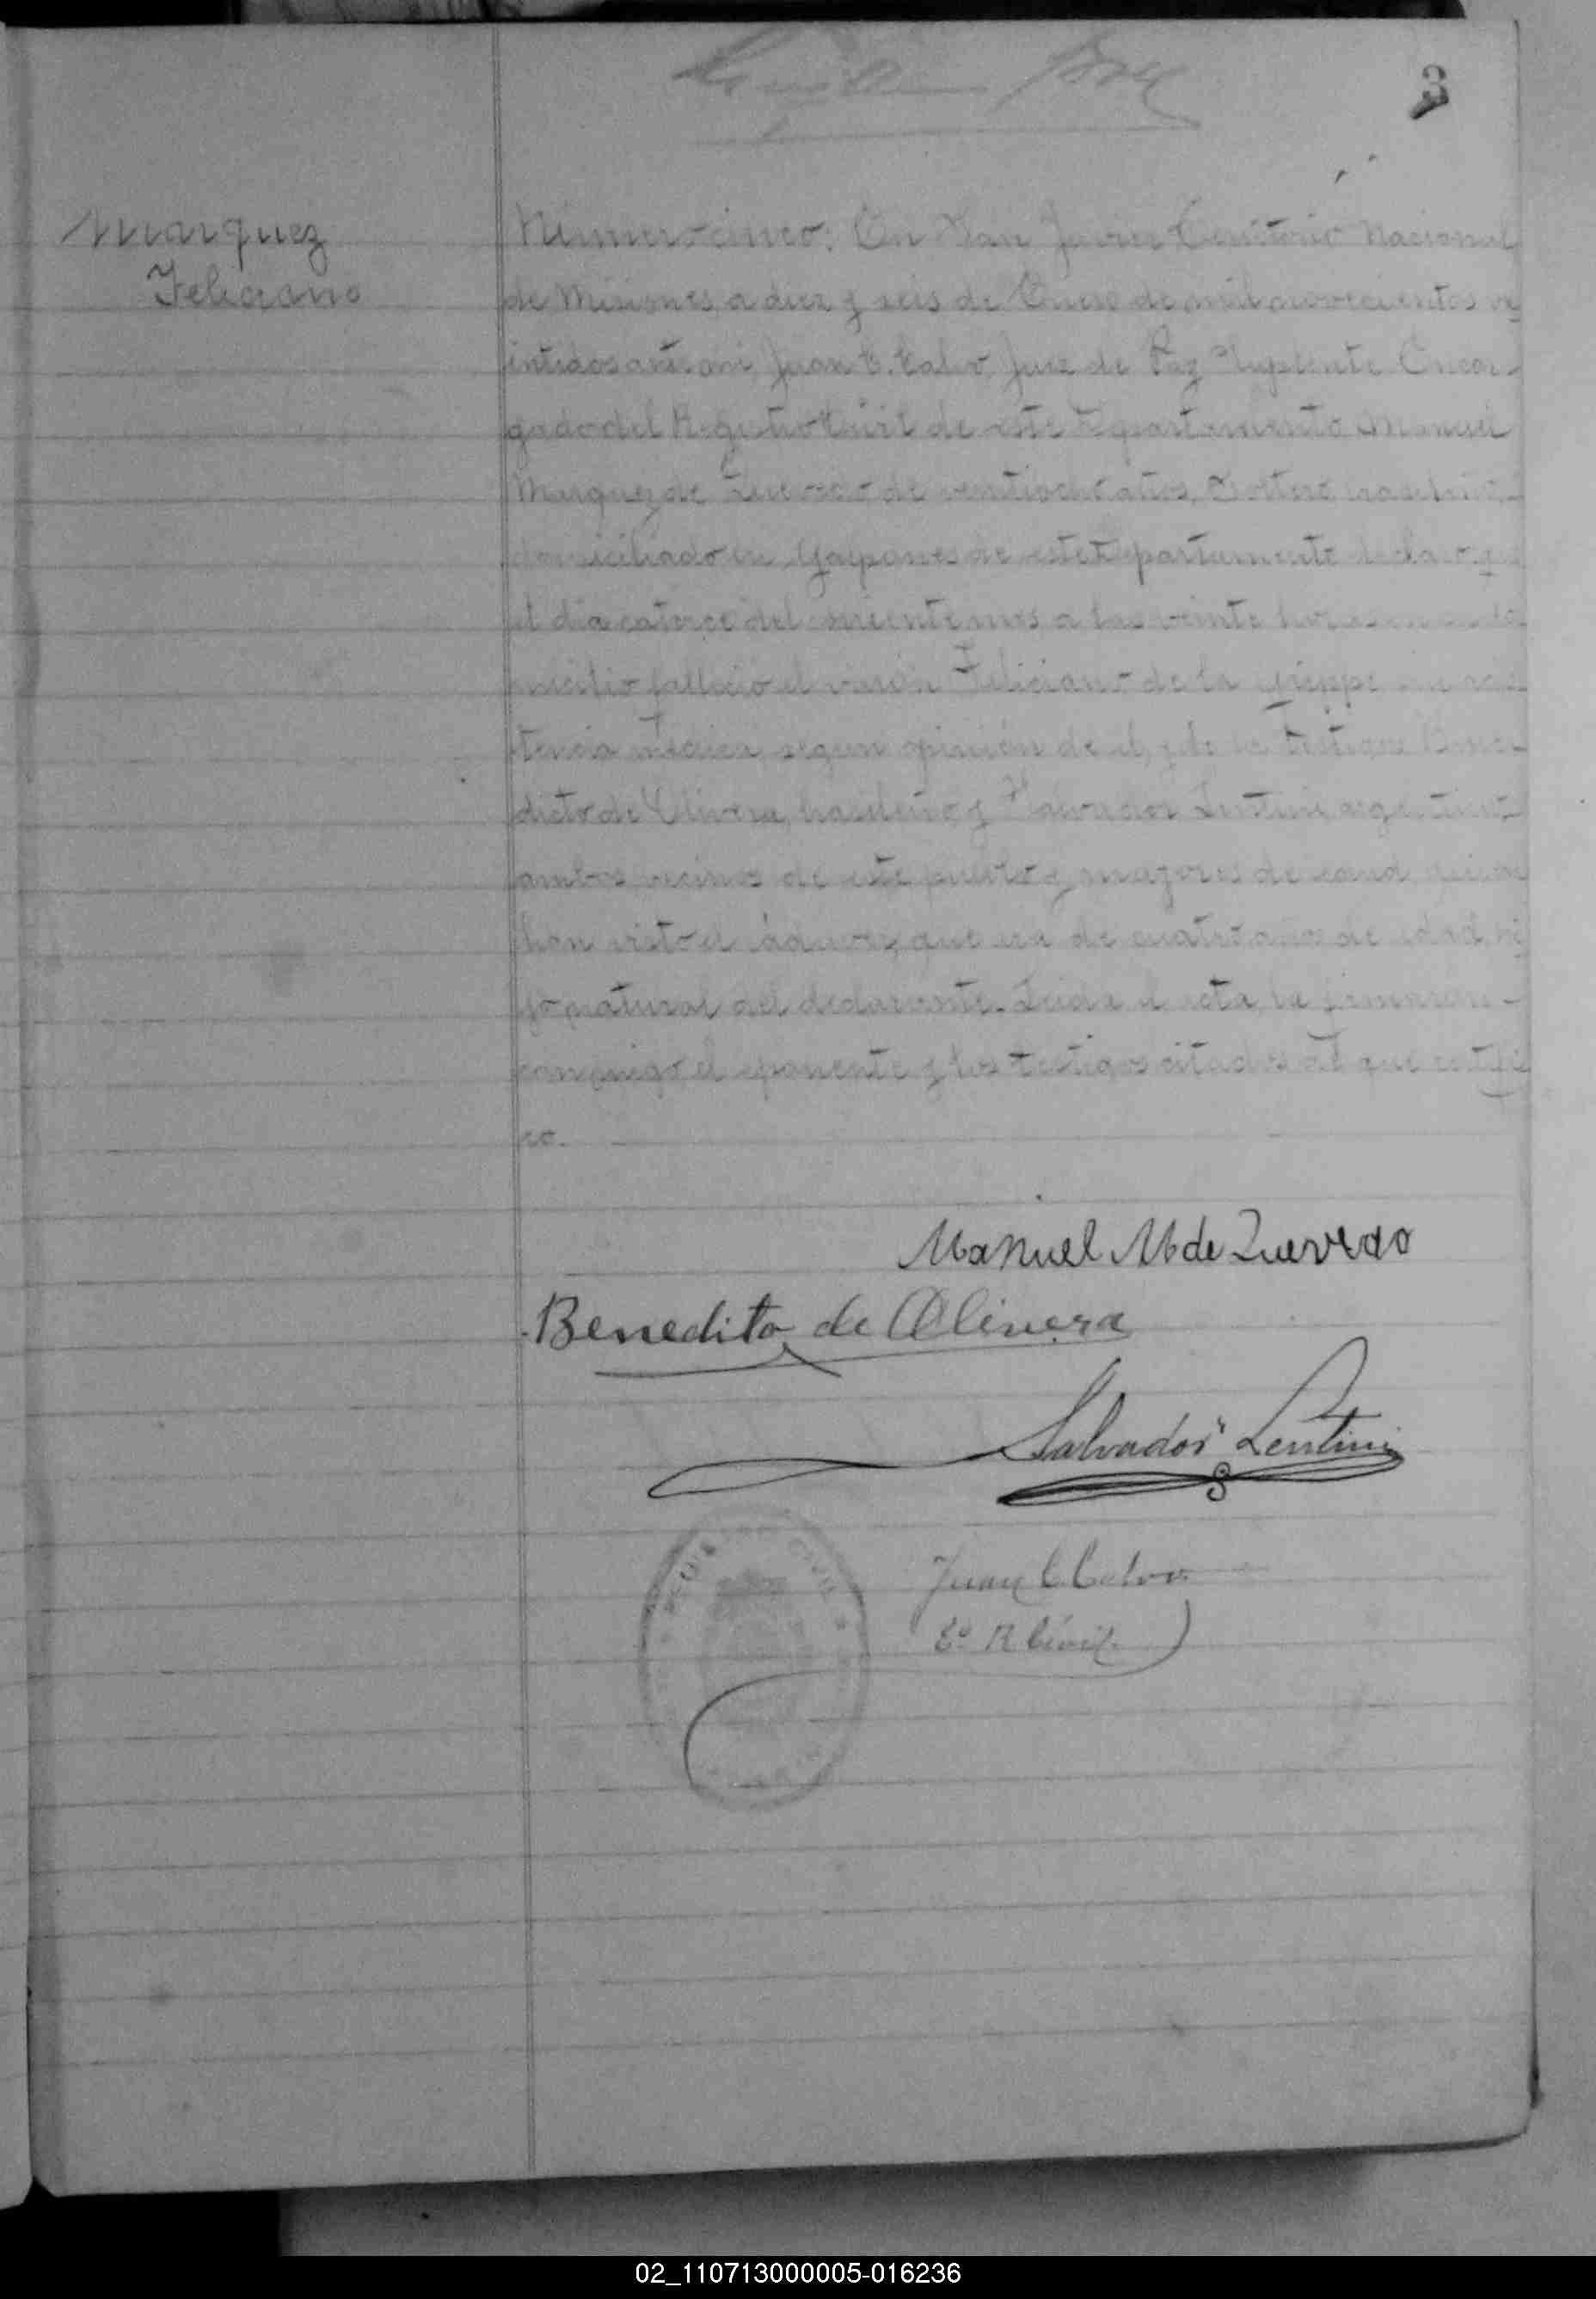 3
Marquez
Feliciano
Numero cinco: En San Javier Territorio Nacional
de Misiones, a diez y seis de Enero de mil novecientos ve
intidos ante mi, Juan C. Calvo, Juez de Paz Suplente Encar-
gado del Registro Civil de este Departamento Manuel
Marquez de Quevedo de ventiocho años, soltero brasilero,
domiciliado en Galpones de este Departamento declaro que
el dia catorce del corriente mes a las veinte horas en su do
micilio falleció el varón Feliciano de la grippe sin asis
tencia médica, segun opinión de el, y de los testigos Bene-
dicto de Olivera, brasilero y Salvador Lentini, argentino
ambos vecinos de este pueblo y mayores de edad, quienes
han visto el cádaver, que era de cuatro años de edad, hi
jo natural del declarante. Leida el acta, la firmaron
conmigo el exponente y los testigos citados de que certifi
co.
Manuel M de Quevedo
Benedito de Olivera
Salvador Lentini
Juan C. Calvo
E. R. Civil
REGISTRO CIVIL
02_110713000005-016236